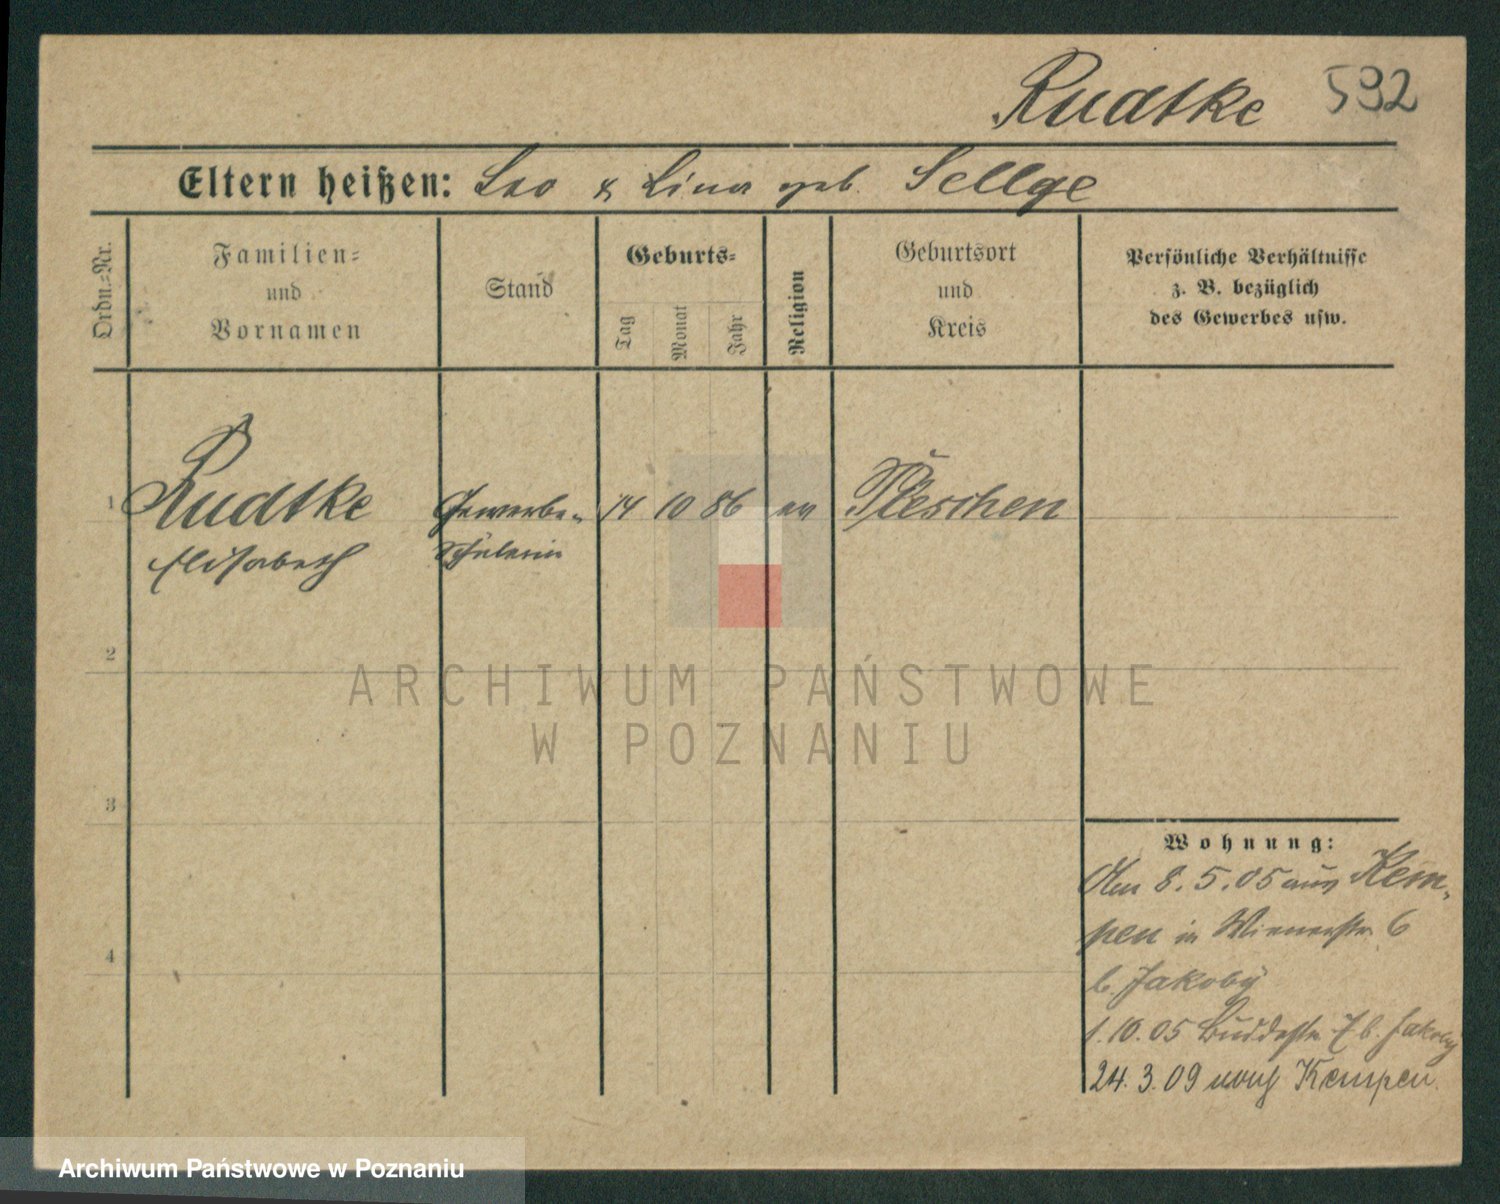 Rudtke 592
Eltern heißen: Leo & Lina geb. Sellge
Ordn.-Nr.
Familien-
und
Vornamen
Stand
Geburts-
Tag
Monat
Jahr
Religion
Geburtsort
und
Kreis
Persönliche Verhältnisse
z. B. bezüglich
des Gewerbes usw.
1 Rudtke Gewerbe- 14 10 86 ev Pleschen
Elisabeth Schülerin
2
3
4
Wohnung:
Am 8.5.05 aus Kem-
pen in Wienerstr 6
b. Jakoby
1.10.05 Buddestr 7 b. Jakoby
24.3.09 nach Kempen.
ARCHIWUM PAŃSTWOWE
W POZNANIU
Archiwum Państwowe w Poznaniu